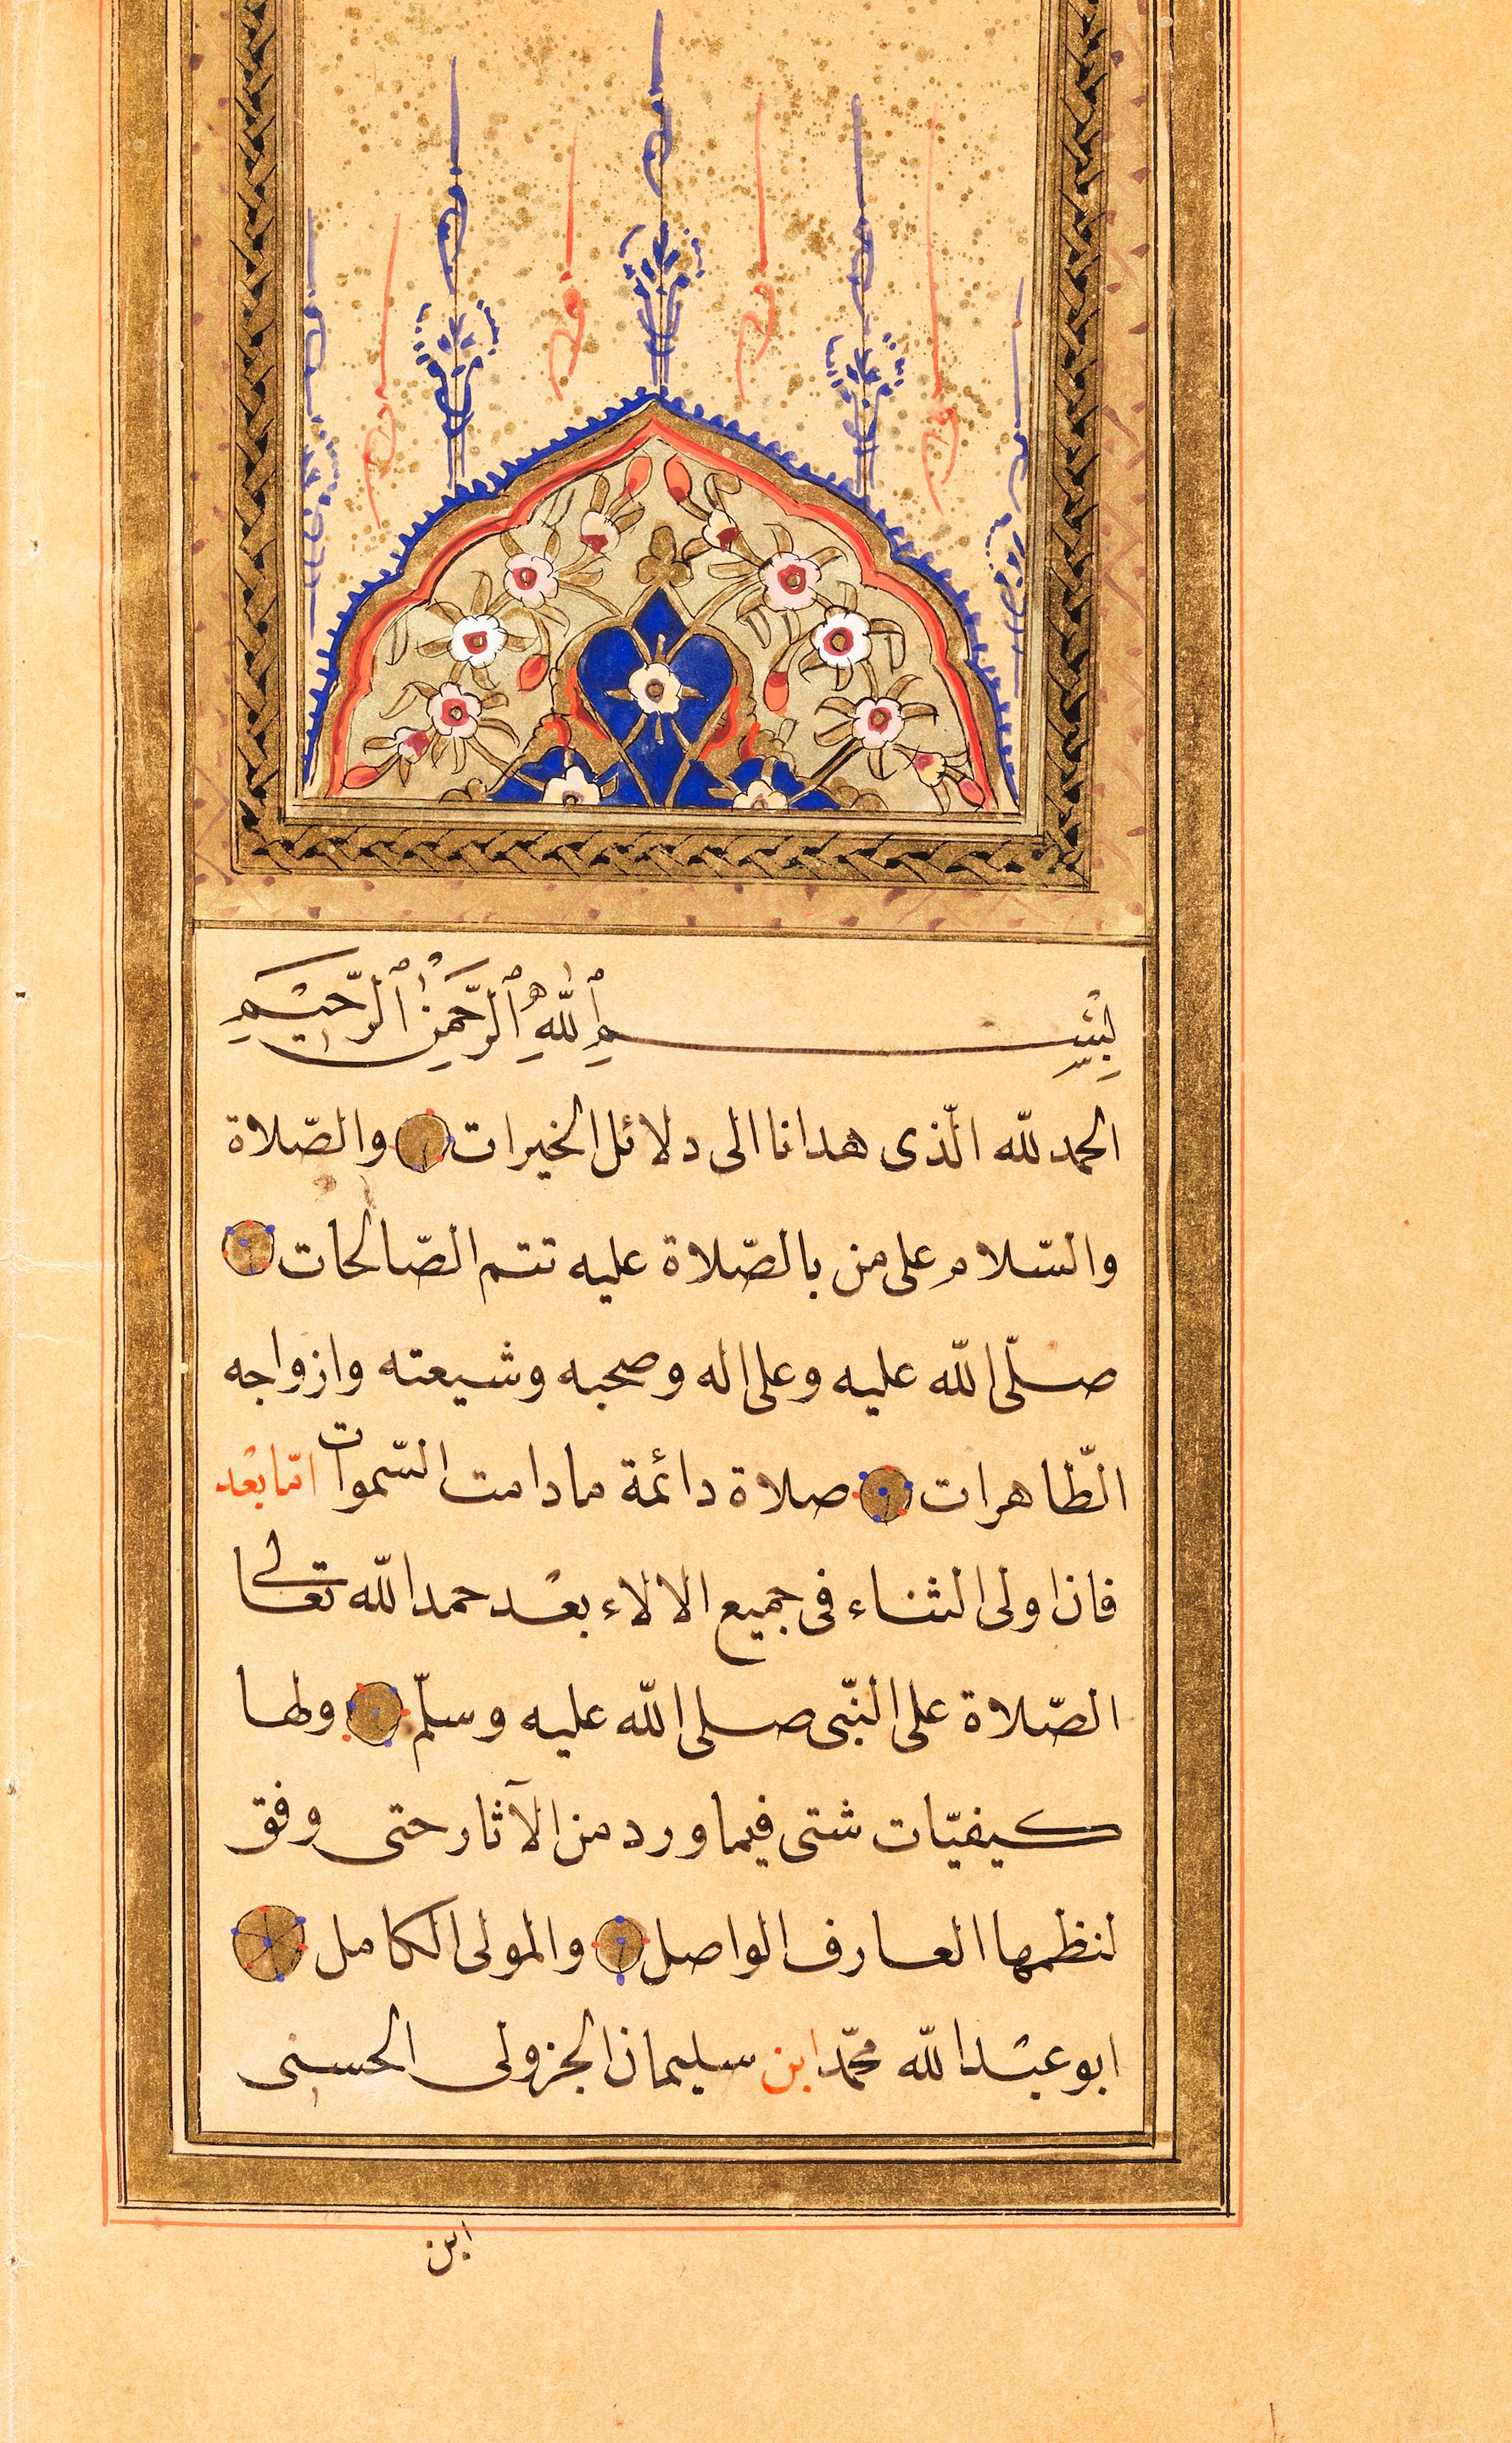 بِسْمِ ٱللّٰهِ ٱلرَّحْمٰنِ ٱلرَّحِيمِ
الحمد لله الّذى هدانا الى دلائل الخيرات والصّلاة
والسّلام على من بالصّلاة عليه تتم الصّالحات
صلّى الله عليه وعلى اله وصحبه وشيعته وازواجه
الطّاهرات صلاة دائمة مادامت السّموات امّا بعد
فان اولى الثناء فى جميع الالاء بعد حمد الله تعالى
الصّلاة على النّبى صلى الله عليه وسلّم ولها
كيفيّات شتى فيما ورد من الآثار حتى وفق
لنظمها العارف الواصل والمولى الكامل
ابو عبد الله محمّد ابن سليمان الجزولى الحسنى
ابن